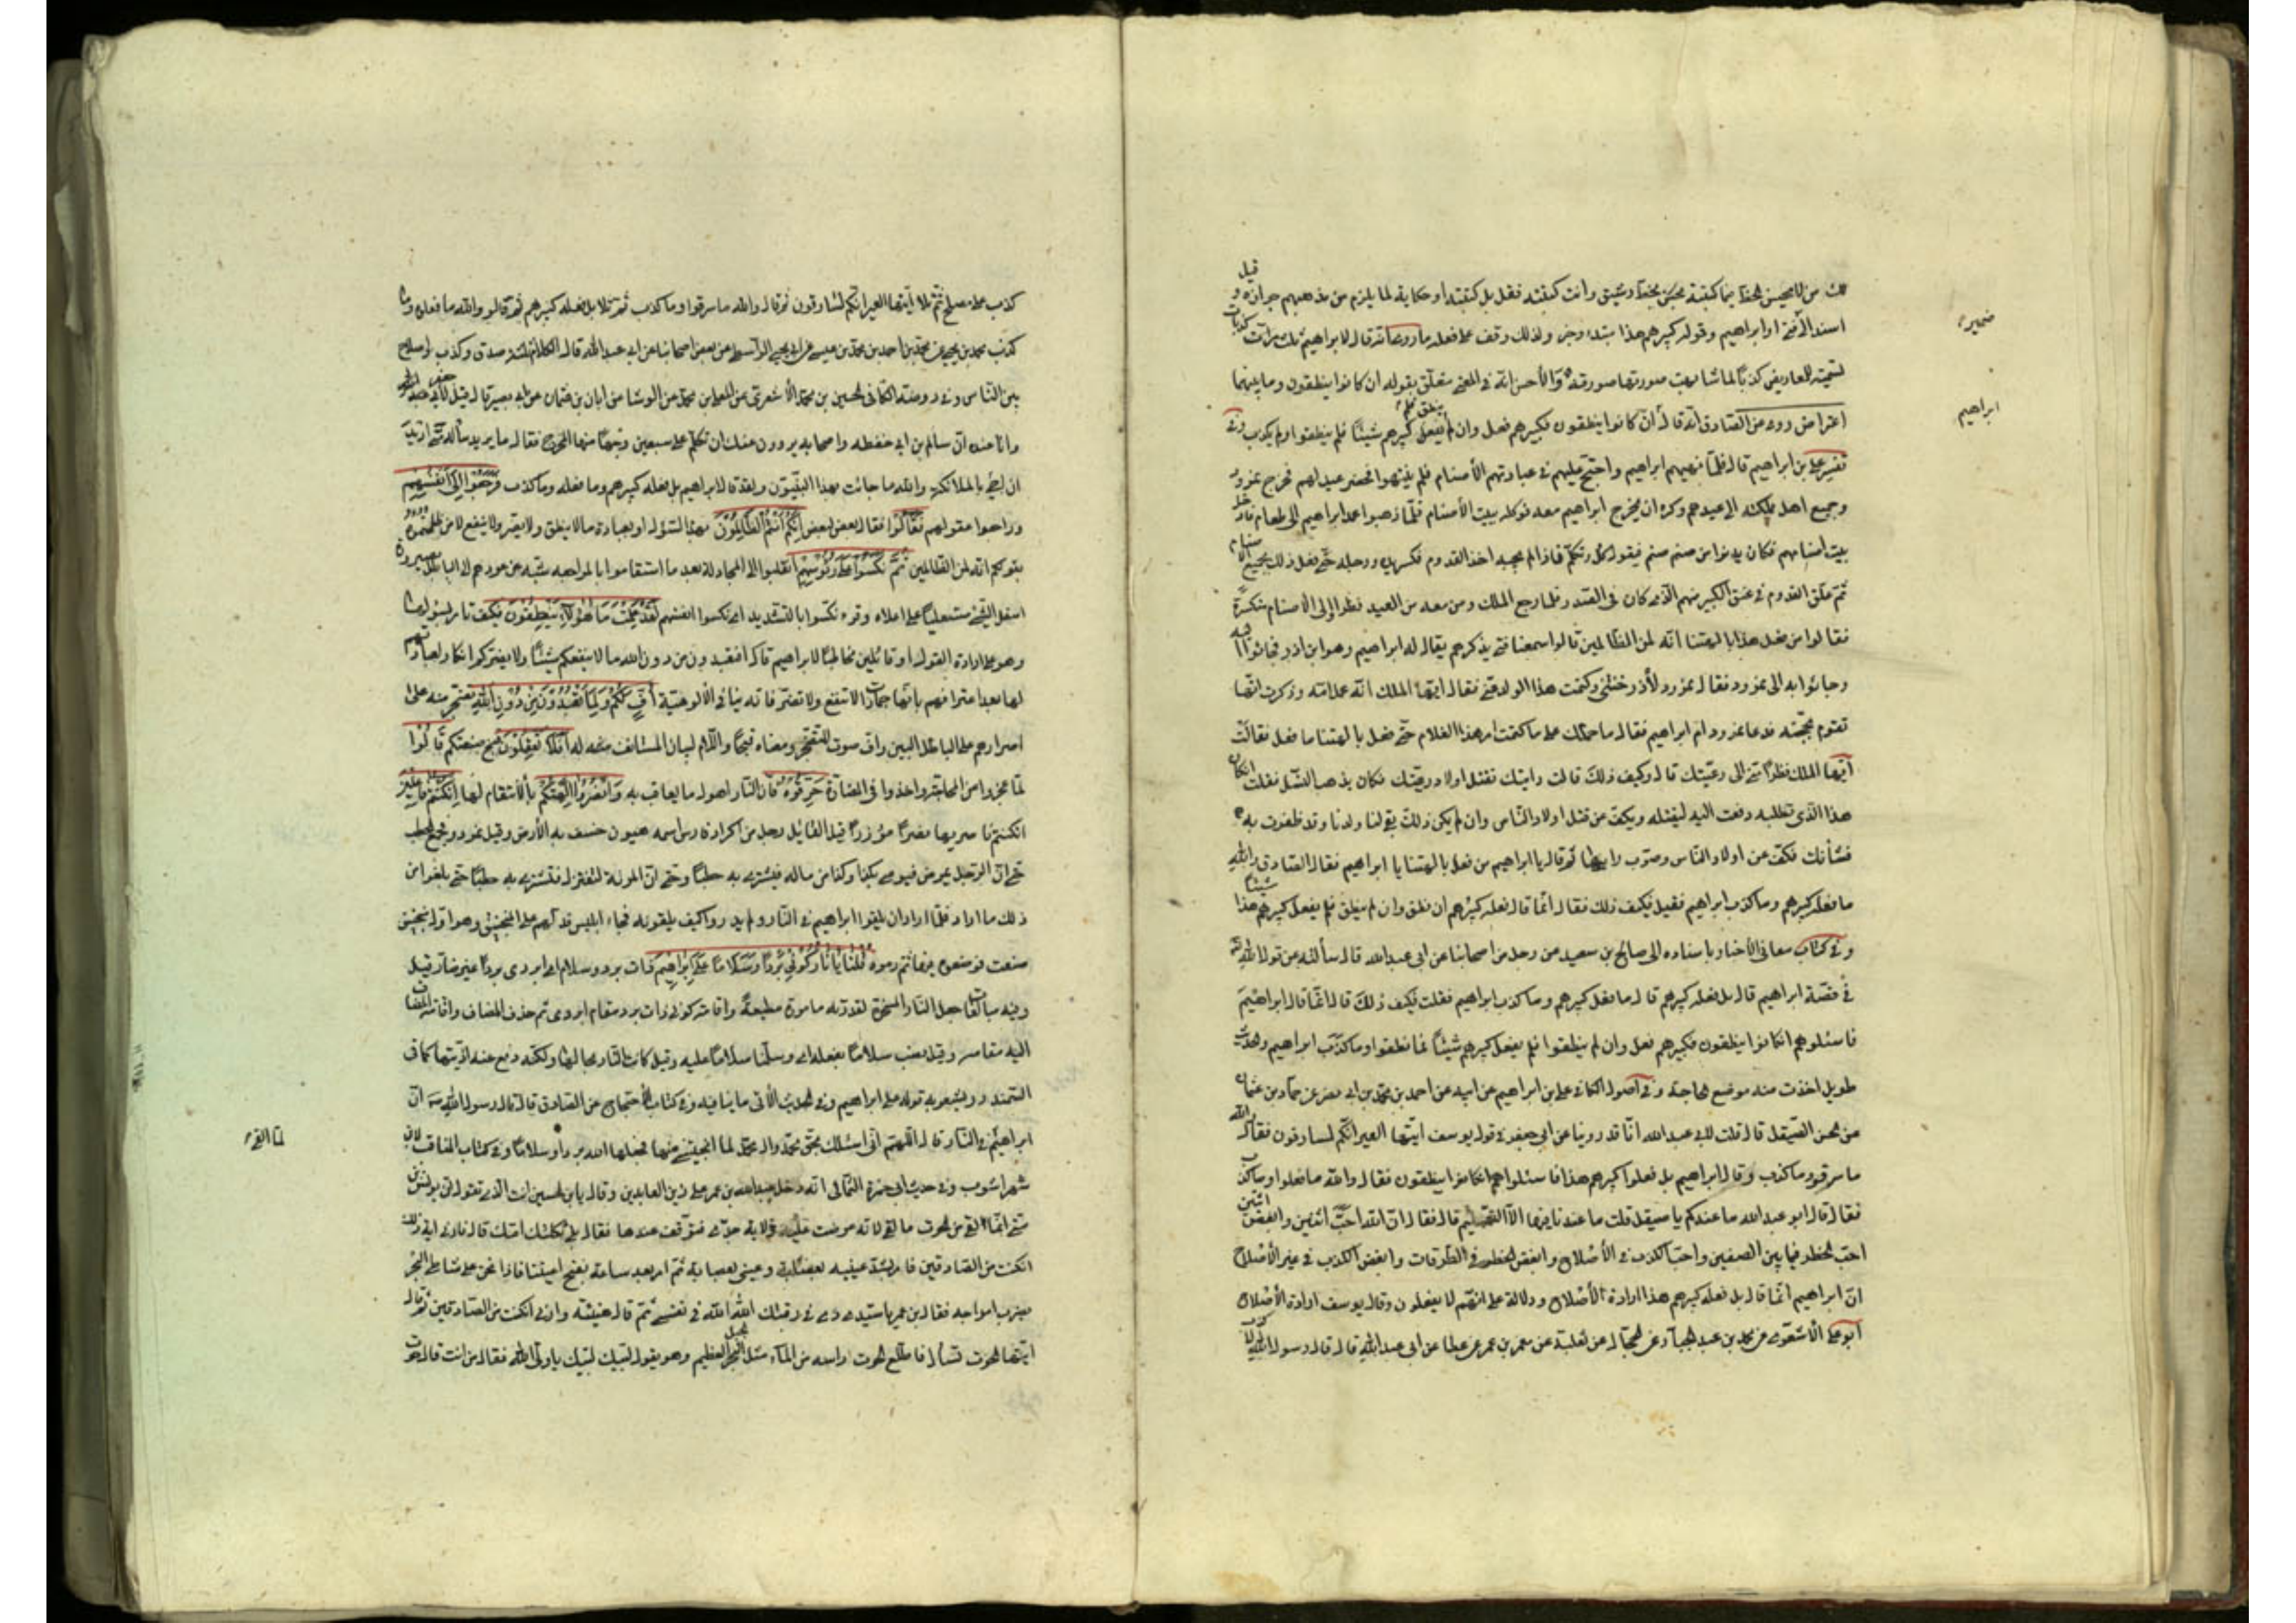 لك من لا يحسن الخط فيما كتبته بخط رشيق وانت كتبته فقل بل كتبته او حكاية لما يلزم من مذهبهم جوازه وقيل
ضميره
اسند الى فتى او ابراهيم وقوله كبيرهم هذا مبتداء وخبر ولذلك وقف على فعله وما روى انه قال لابراهيم ثلث كذبات
لتسمية المعاريض كذبا لما شابهت صورتها صورته والأحسن انه في المعنى متعلق بقوله ان كانوا ينطقون وما بينهما
ابراهيم
اعتراض روى عن الصادق انه قال ان كانوا ينطقون فكبيرهم فعل وان لم ينطق فلم يفعل كبيرهم شيئًا فلم ينطقوا ولم يكذب وفي
تفسير على بن ابراهيم قال فلما نهيهم ابراهيم واحتج عليهم في عبادتهم الأصنام فلم ينتهوا فحضر عيد لهم فخرج نمرود
وجميع اهل مملكته الى عيدهم وكره ان يخرج ابراهيم معه فوكله ببيت الأصنام فلما ذهبوا عمد ابراهيم الى طعام فادخل
بيت اصنامهم فكان يدنوا من صنم صنم فيقول كل وتكلم فاذا لم يجبه اخذ القدوم فكسر يده ورجله حتى فعل ذلك بجميع الأصنام
ثم علق القدوم في عنق الكبير منهم الذى كان في الصدر فلما رجع الملك ومن معه من العيد نظروا الى الأصنام متكسرة
فقالوا من فعل هذا بالهتنا انه لمن الظالمين قالوا سمعنا فتى يذكرهم يقال له ابراهيم وهو ابن اذر فجاؤا
وجائوا به الى نمرود فقال نمرود لأذر خنتنى وكتمت هذا الولد عنى فقال ايها الملك انه عمل امه وذكرت انها
تقوم بحجته فدعا نمرود ام ابراهيم فقال ما حملك على ما كتمت امر هذا الغلام حتى فعل بالهتنا ما فعل فقالت
ايها الملك نظرًا منى الى رعيتك قال وكيف ذلك قالت رايتك تقتل اولاد رعيتك فكان يذهب النسل فقلت ان كان
هذا الذى تطلبه دفعت اليه ليقتله ويكف عن قتل اولاد الناس وان لم يكن ذلك بقى لنا ولدنا وقد ظفرت به
فشأنك فكف عن اولاد الناس وصوب رايها ثم قال يا ابراهيم من فعل بالهتنا يا ابراهيم فقال الصادق والله
ما فعله كبيرهم وما كذب ابراهيم فقيل فكيف ذلك فقال انما قال فعله كبيرهم ان نطق وان لم ينطق فلم يفعل كبيرهم هذا شيئًا
وفي كتاب معانى الأخبار باسناده الى صالح بن سعيد عن رجل من اصحابنا عن ابى عبد الله قال سألته عن قول الله
في قصة ابراهيم قال بل فعله كبيرهم قال ما فعل كبيرهم وما كذب ابراهيم فقلت فكيف ذلك قال انما قال ابراهيم
فاسئلوهم ان كانوا ينطقون فكبيرهم فعل وان لم ينطقوا فلم يفعل كبيرهم شيئًا فما نطقوا وما كذب ابراهيم والحديث
طويل اخذت منه موضع الحاجة وفي اصول الكافى على بن ابراهيم عن ابيه عن احمد بن محمد بن ابى نصر عن حماد بن عثمان
عن حسن الصيقل قال قلت لابى عبد الله انا قد روينا عن ابى جعفر في قول يوسف ايتها العير انكم لسارقون فقال والله
ما سرقوا وما كذب وقال ابراهيم بل فعله كبيرهم هذا فاسئلوهم ان كانوا ينطقون فقال والله ما فعلوا وما كذب
فقال قال ابو عبد الله ما عندكم يا صيقل قلت ما عندنا فيها الا التسليم قال فقال ان الله احب اثنين وابغض اثنين
احب الخطر فيما بين الصفين واحب الكذب في الأصلاح وابغض الخطر في الطرقات وابغض الكذب في غير الأصلاح
ان ابراهيم انما قال بل فعله كبيرهم هذا ارادة الأصلاح ودلالة على انهم لا يفعلون وقال يوسف ارادة الأصلاح
ابو على الأشعرى عن محمد بن عبد الجبار عن الحجال عن ثعلبة عن معمر بن عمرو عن عطا عن ابى عبد الله قال قال رسول الله لا كذب
كذب على مصلح ثم تلا ايتها العير انكم لسارقون ثم قال والله ما سرقوا وما كذب ثم تلا بل فعله كبيرهم ثم قال والله ما فعلوه وما
كذب محمد بن يحيى عن محمد بن احمد بن محمد بن عيسى عن ابى يحيى الواسطى عن بعض اصحابنا عن ابى عبد الله قال الكلام ثلثة صدق وكذب واصلاح
بين الناس وفي روضة الكافى الحسين بن محمد الأشعرى عن المعلى بن محمد عن الوشا عن ابان بن عثمان عن ابى بصير قال قيل لأبى جعفر
وانا عنده ان سالم بن ابى حفصة واصحابه يروون عنك ان تكلم على سبعين وجهًا منها المخرج فقال ما يريد سالم منى ايريد
ان اجئ بالملائكة والله ما جائت بهذا النبيون ولقد قال ابراهيم بل فعله كبيرهم وما فعله وما كذب فرجعوا الى انفسهم
وراجعوا عقولهم فقالوا فقال بعض لبعض انكم انتم الظالمون بهذا السؤال او بعبادة ما لا ينطق ولا يضر ولا ينفع لا من ظلمتموه
بقولكم انه لمن الظالمين ثم نكسوا على رؤسهم انقلبوا الى المجادلة بعد ما استقاموا بالمراجعة شبه عودهم الى الباطل بصيرورة
اسفل الشئ مستعليًا على اعلاه وقرء نكسوا بالتشديد اى نكسوا انفسهم لقد علمت ما هؤلاء ينطقون فكيف تامر بسؤالها
وهو على ارادة القول اى قائلين مخاطبًا لابراهيم قال افتعبدون من دون الله ما لا ينفعكم شيئًا ولا يضركم انكار لعبادتهم
لها بعد اعترافهم بانها جمادات لا تنفع ولا تضر فانه ينافى الألوهية اف لكم ولما تعبدون من دون الله تضجر منه على
اصرارهم على الباطل البين واف صوت المتضجر ومعناه قبحًا واللام لبيان المتأفف له افلا تعقلون قبح صنيعكم قالوا
لما عجزوا من المحاجة واخذوا في المضارة حرقوه فان النار اهول ما يعاقب به وانصروا الهتكم بالأنتقام لها ان كنتم فاعلين
ان كنتم ناصريها نصرًا مؤزرًا قيل القائل رجل من اكراد فارس اسمه هيون خسف به الأرض وقيل نمرود فجمع الحطب
حتى ان الرجل يمرض فيوصى بكذا وكذا من ماله فيشترى به حطبًا وحتى ان المرئة لتغزل فتشترى به حطبًا حتى بلغوا من
ذلك ما ارادوا فلما ارادوا ان يلقوا ابراهيم في النار ولم يدروا كيف يلقونه فجاء ابليس فدلهم على المنجنيق وهو اول منجنيق
صنعت فوضعوه فيها ثم رموه قلنا يا نار كونى بردًا وسلامًا على ابراهيم ذات برد وسلام اى ابردى بردًا غير ضار قيل
وفيه مبالغات جعل النار المسخرة لقدرته مامورة مطيعة واقامة كونى ذات برد مقام ابردى ثم حذف المضاف واقامة المضاف
اليه مقامه وقيل نصب سلامًا بفعله اى وسلمنا سلامًا عليه وقيل كانت النار بحالها ولكنه دفع عنه اذيتها كما في
السمندر ويشعر به قوله على ابراهيم وفي الحديث الأتى ما ينافيه وفي كتاب الأحتجاج عن الصادق قال قال رسول الله ان
لما القى
ابراهيم في النار قال اللهم انى اسئلك بحق محمد وال محمد لما انجيتنى منها فجعلها الله بردًا وسلامًا وفي كتاب المناقب لابن
شهر اشوب وفي حديث ابى حمزة الثمالى انه دخل عبد الله بن عمر على زين العابدين وقال يا بن الحسين انت الذى تقول ان يونس بن
متى انما لقى من الحوت ما لقى لانه عرضت عليه ولاية جدى فتوقف عندها فقال بلى ثكلتك امك قال فارنى اية ذلك
ان كنت من الصادقين فامر بشد عينيه بعصابة وعينى بعصابة ثم امر بعد ساعة بفتح اعيننا فاذا نحن على شاطئ البحر
يضرب امواجه فقال بن عمر يا سيدى دمى في رقبتك الله الله في نفسى ثم قال هنيئة وارنى ان كنت من الصادقين ثم قال
ايتها الحوت قال فاطلع الحوت راسه من الماء مثل الجبل العظيم وهو يقول لبيك لبيك يا ولى الله فقال من انت قال حوت